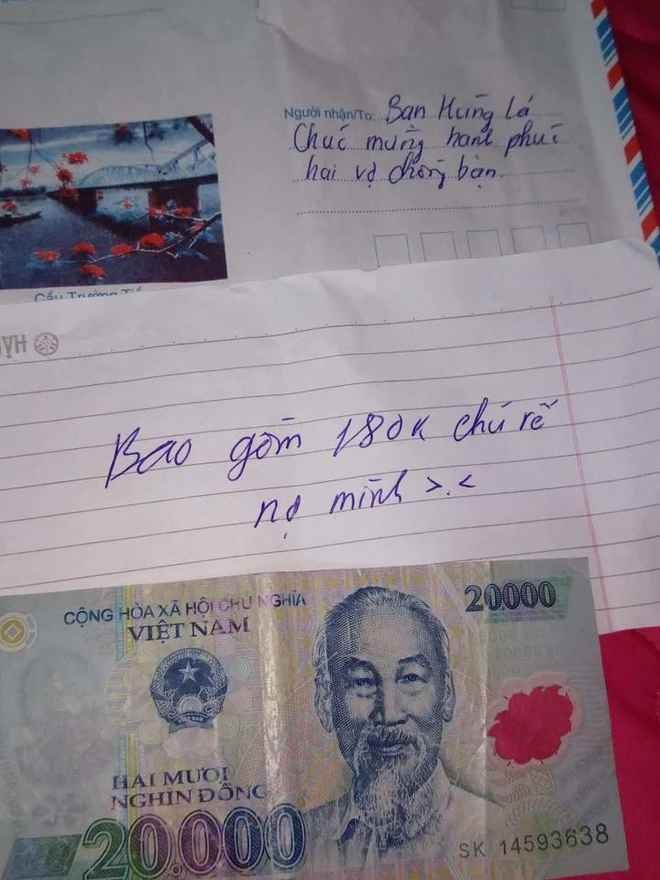 Người nhận/To: Bạn Hùng Lá
Chúc mừng hạnh phúc
hai vợ chồng bạn.
Cầu Trường Tiền
Bao gồm 180k chú rể
nợ mình >.<
CỘNG HÒA XÃ HỘI CHỦ NGHĨA
VIỆT NAM
20000
HAI MƯƠI
NGHÌN ĐỒNG
20.000
SK 14593638